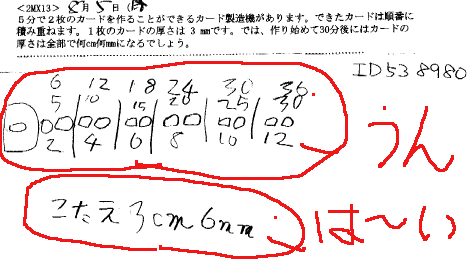 <2MX13> 8月5日(
5分で2枚のカードを作ることができるカード製造機があります。できたカードは順番に
積み重ねます。1枚のカードの厚さは 3 mmです。では、作り始めて30分後にはカードの
厚さは全部で何cm何mmになるでしょう。
ID538980
6 12 18 24 30 36
5 10 15 20 25 30
2 4 6 8 10 12
うん
こたえ3cm6mm
は〜い